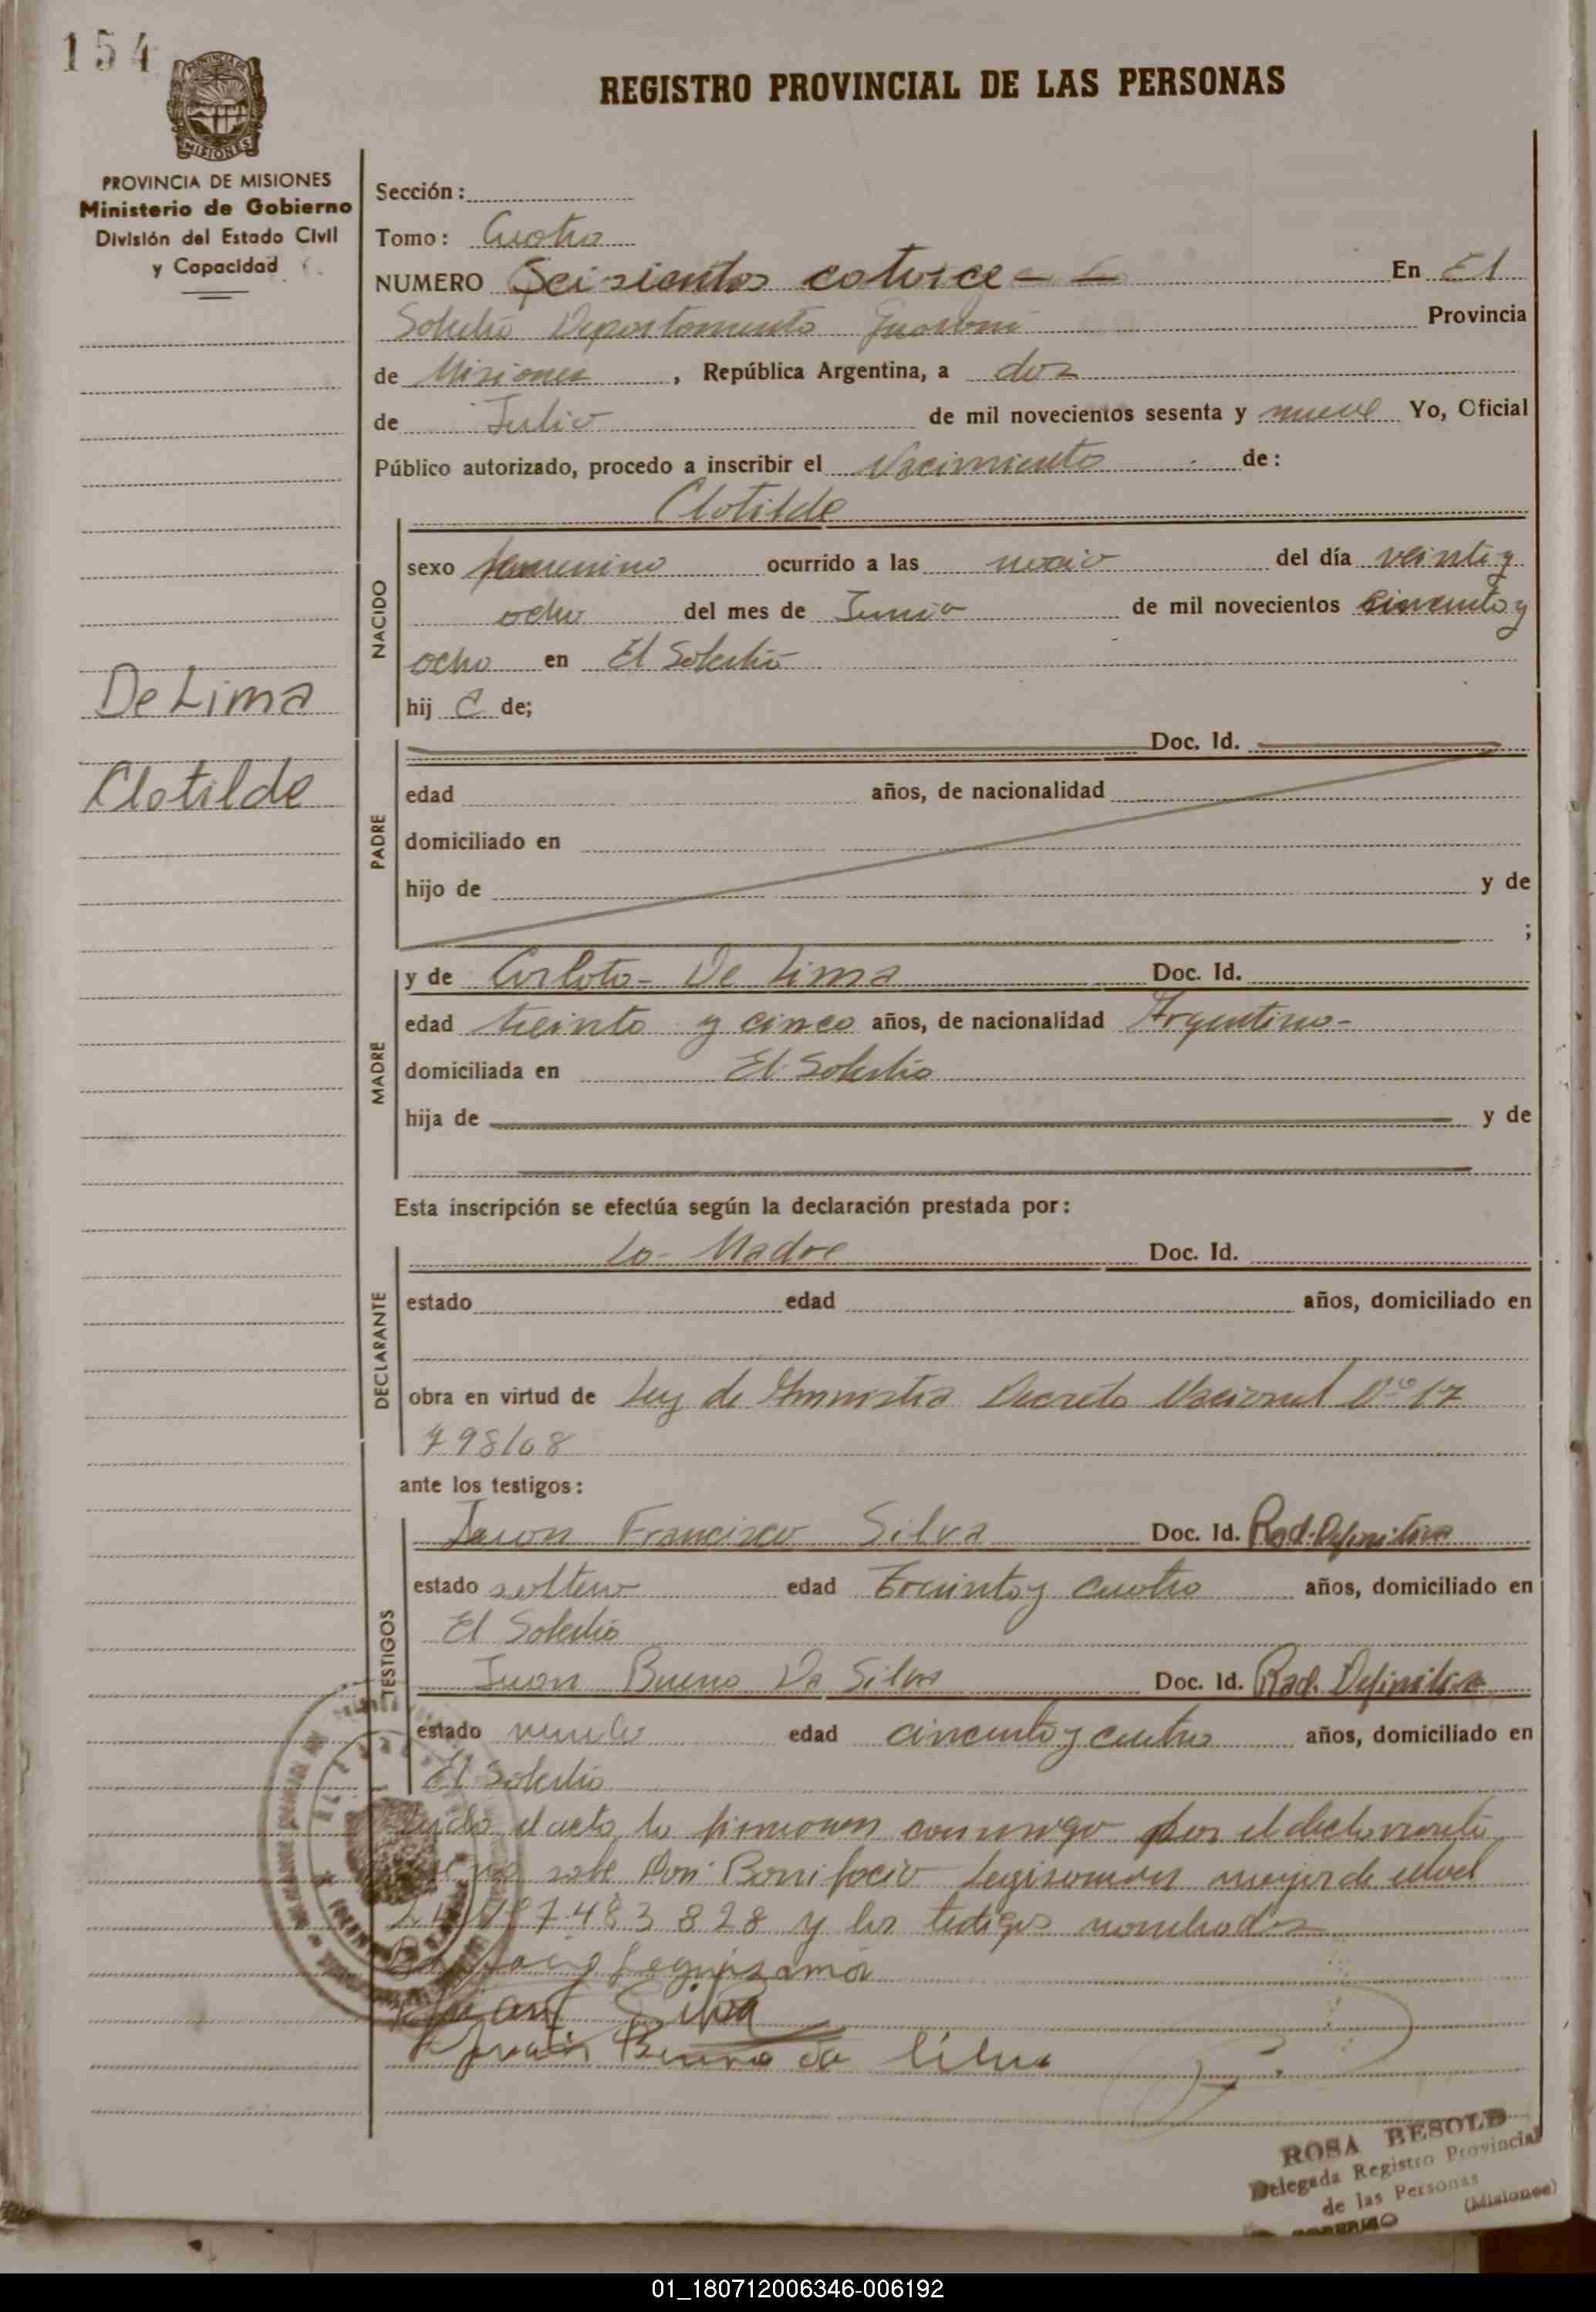 154
REGISTRO PROVINCIAL DE LAS PERSONAS
MISIONES
PROVINCIA DE MISIONES
Ministerio de Gobierno
División del Estado Civil
y Capacidad
Sección:
Tomo: Cuatro
NUMERO Seisientos catorce En El
Soberbio Departamento Guaraní Provincia
de Misiones, República Argentina, a dos
de Julio de mil novecientos sesenta y nueve Yo, Oficial
Público autorizado, procedo a inscribir el Nacimiento de:
Clotilde
NACIDO
sexo femenino ocurrido a las del día veinte y
ocho del mes de Junio de mil novecientos cincuenta y
ocho en El Soberbio
hij a de;
De Lima
Clotilde
PADRE
Doc. Id.
edad años, de nacionalidad
domiciliado en
hijo de y de
;
MADRE
y de Carlota De Lima Doc. Id.
edad treinta y cinco años, de nacionalidad Argentina
domiciliada en El Soberbio
hija de y de
Esta inscripción se efectúa según la declaración prestada por:
DECLARANTE
La Madre Doc. Id.
estado edad años, domiciliado en
obra en virtud de Ley de Amnistia Decreto Nacional Nº 17
798/68
ante los testigos:
TESTIGOS
Juan Francisco Silva Doc. Id. Rad. Definitiva
estado soltero edad Treinta y cuatro años, domiciliado en
El Soberbio
Juan Bueno Da Silva Doc. Id. Rad. Definitiva
estado edad cincuenta y cuatro años, domiciliado en
El Soberbio
el acto, la firmaron conmigo por el declarante
Don Bonifacio Legisamon mayor de edad
7483828 y los testigos nombrados
Leguizamón
Juan Silva
Juan Bueno da Silva
ROSA BESOLD
Delegada Registro Provincial
de las Personas
(Misiones)
01_180712006346-006192